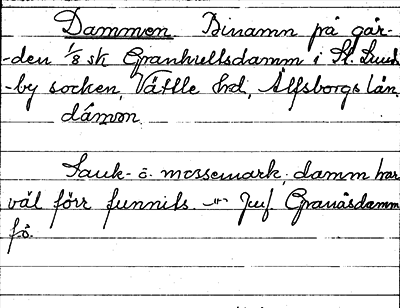 Dammen Binamn på går-
-den 1/8 sk Granhultsdamm i St. Lund-
-by socken, Vättle hd, Älfsborgs län.
dámøn
Sank- o. mossemark; damm har
väl förr funnits. — Jmf. Granåsdamm
fö.